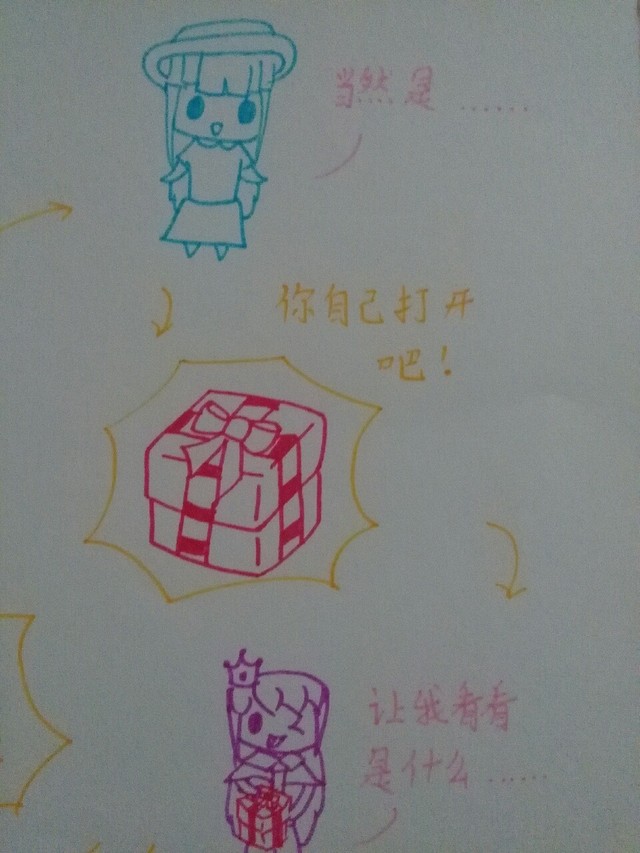 当然是……
你自己打开
吧！
让我看看
是什么……